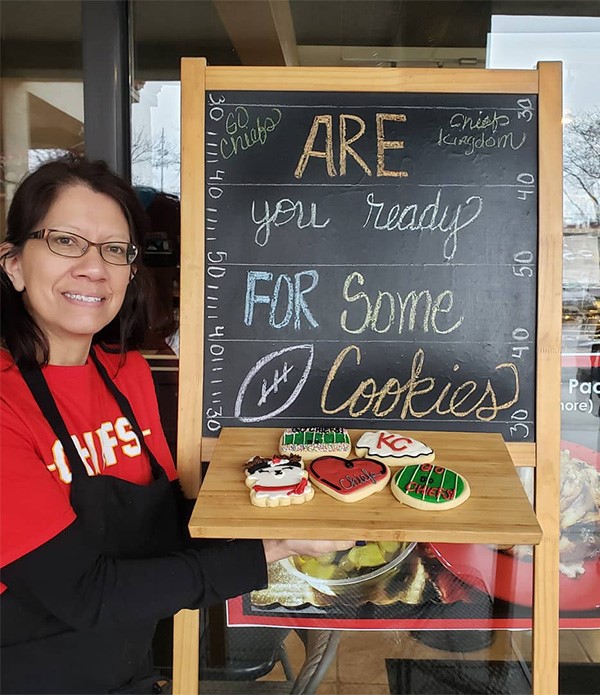 GO
Chiefs
Chiefs
Kingdom
ARE
you ready
FOR Some
Cookies
30 40 50 40 30
30 40 50 40 30
CHIEFS
GO CHIEFS
KC
Chiefs
GO
CHIEFS
Pa
more)